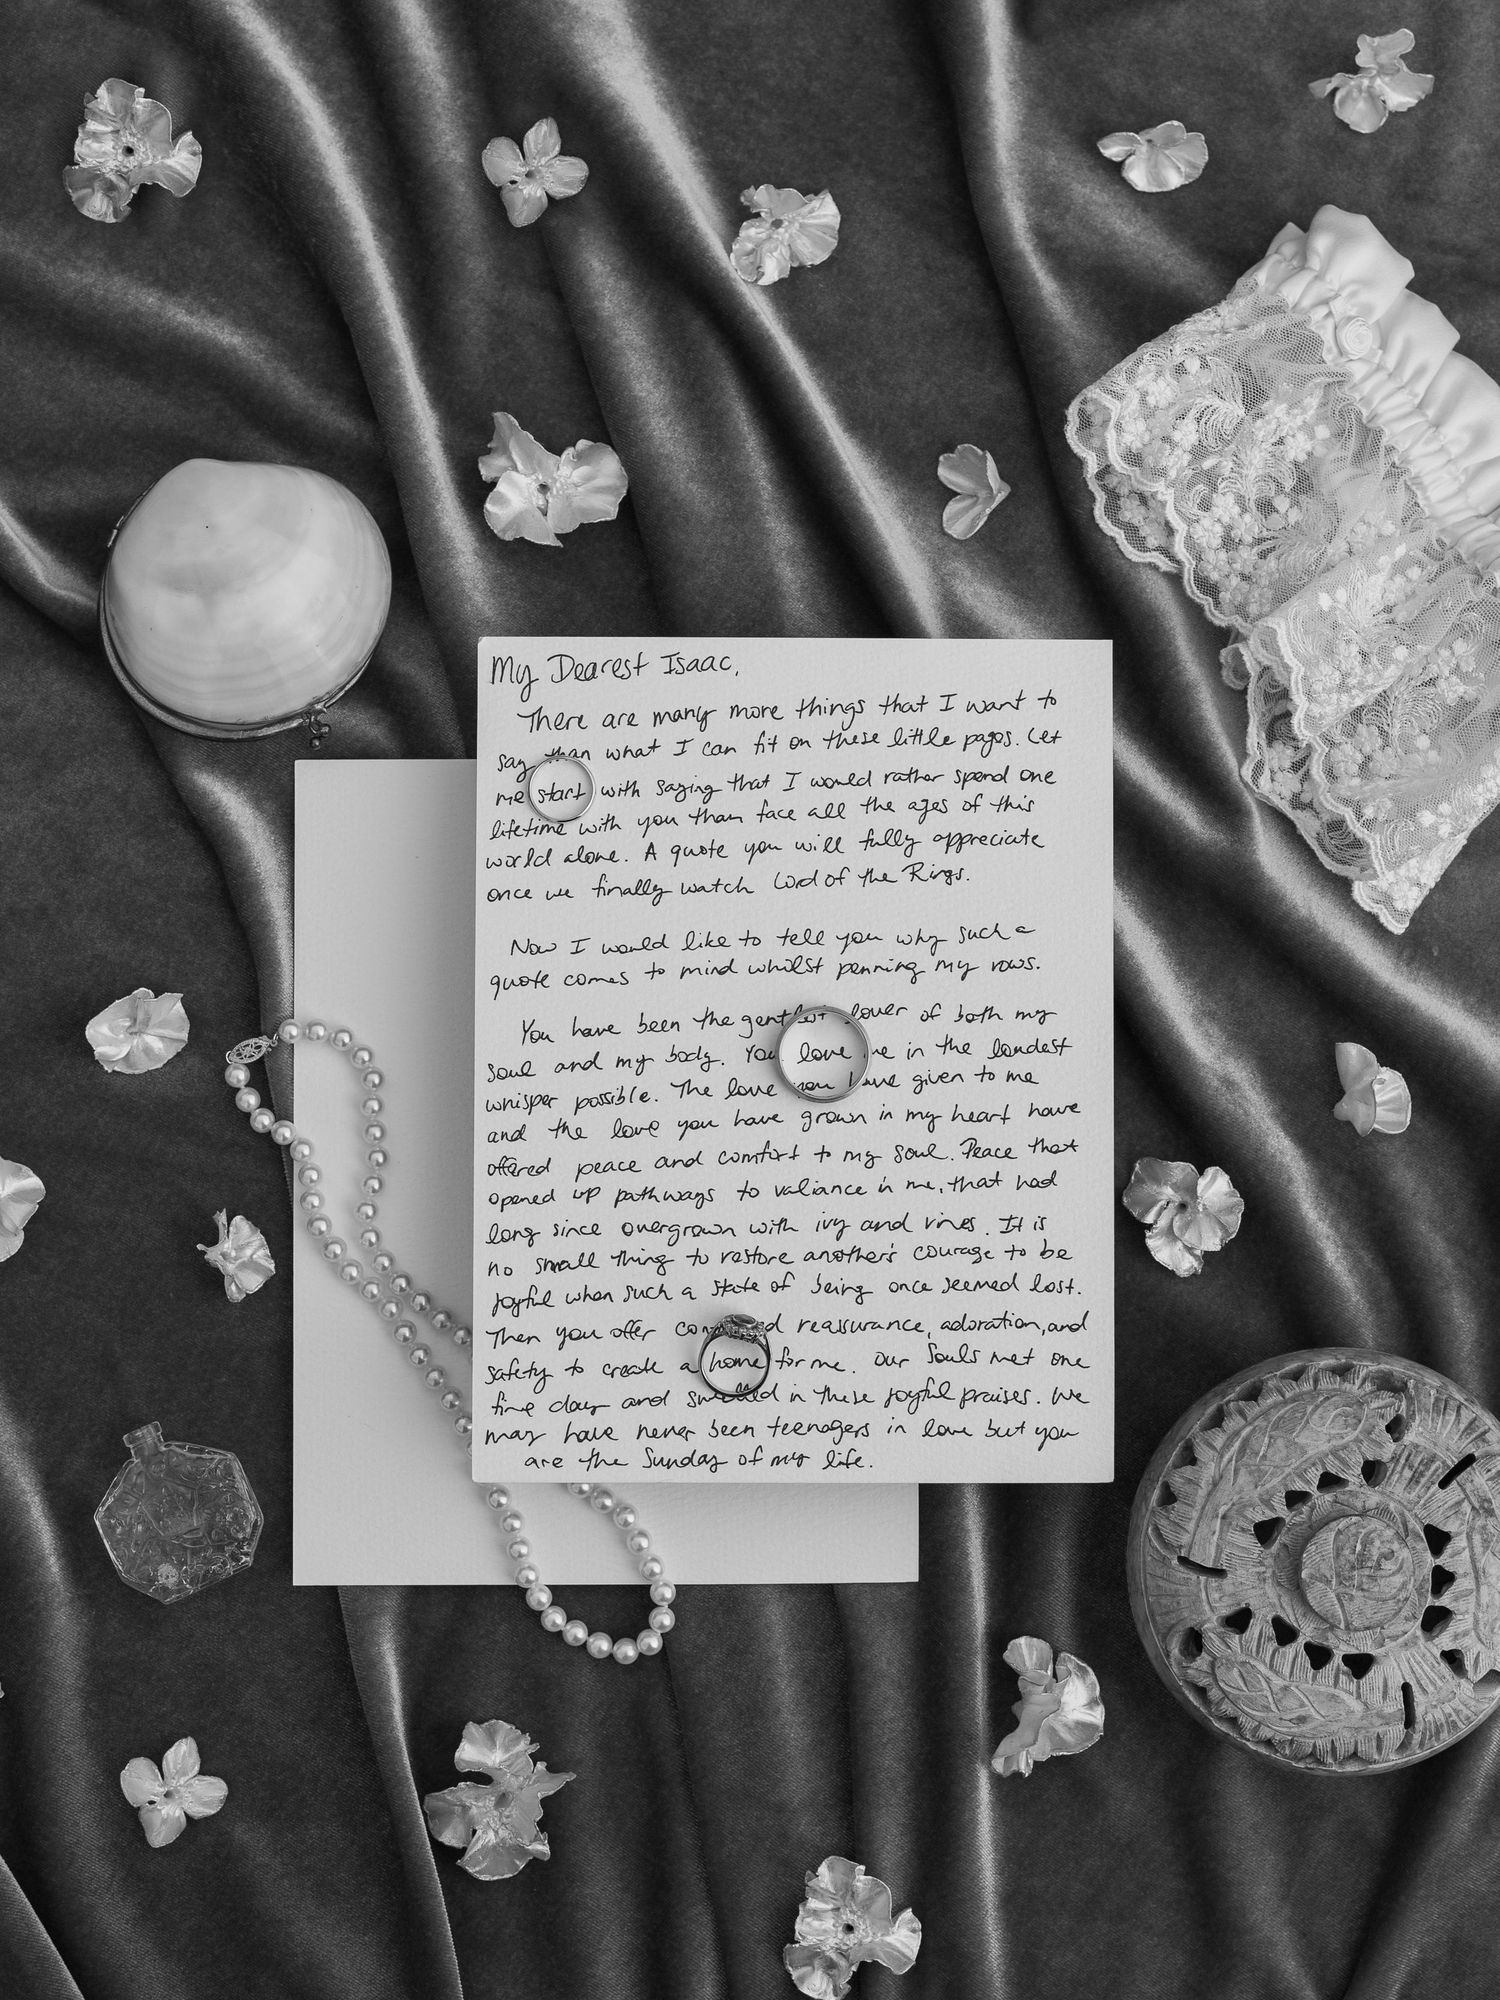 My Dearest Isaac,
There are many more things that I want to
say than what I can fit on these little pages. Let
me start with saying that I would rather spend one
lifetime with you than face all the ages of this
world alone. A quote you will fully appreciate
once we finally watch Lord of the Rings.
Now I would like to tell you why such a
quote comes to mind whilst penning my vows.
You have been the gentlest lover of both my
soul and my body. You love me in the loudest
whisper possible. The love you have given to me
and the love you have grown in my heart have
offered peace and comfort to my soul. Peace that
opened up pathways to valiance in me, that had
long since overgrown with ivy and vines. It is
no small thing to restore another's courage to be
joyful when such a state of being once seemed lost.
Then you offer reassurance, adoration, and
safety to create a home for me. Our souls met one
fine day and in these joyful praises. We
may have never been teenagers in love but you
are the Sunday of my life.